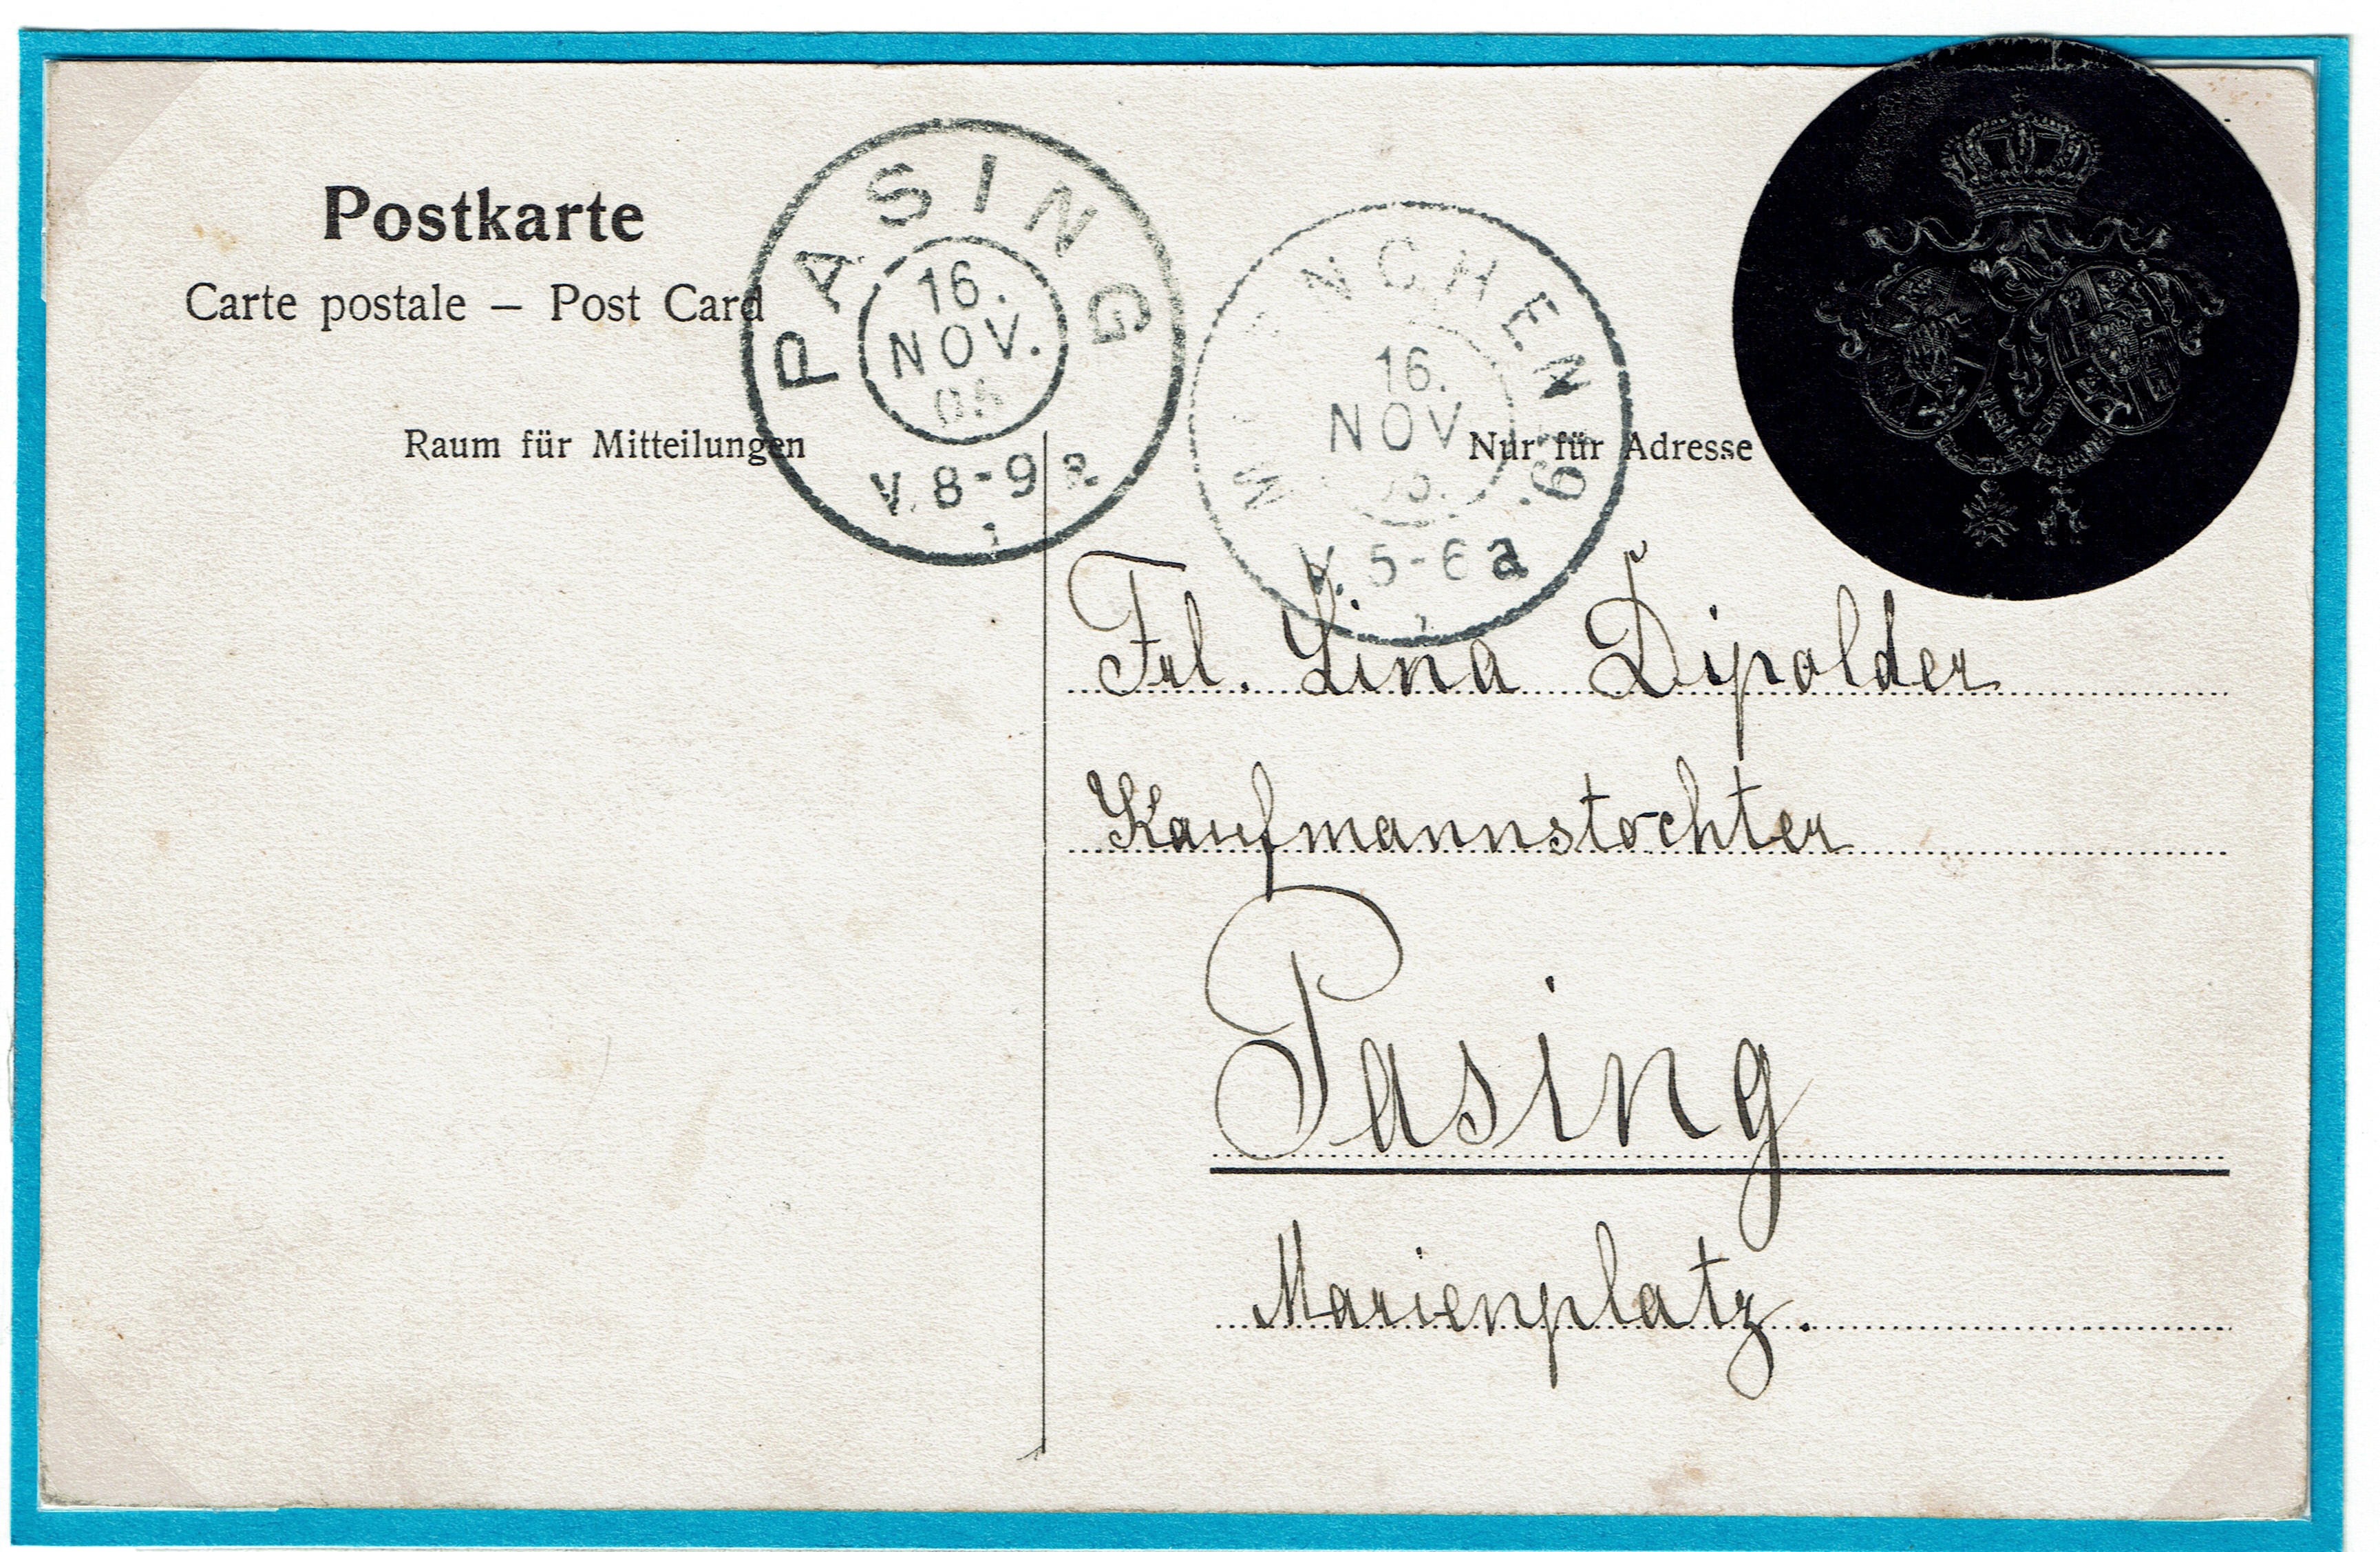 Postkarte
Carte postale – Post Card
Raum für Mitteilungen
PASING
16.
NOV.
V. 8-9 a
1
MÜNCHEN 19.
16.
NOV
V. 5-6 a
1
Nur für Adresse
Frl. Lina Dipolder
Kaufmannstochter
Pasing
Marienplatz.